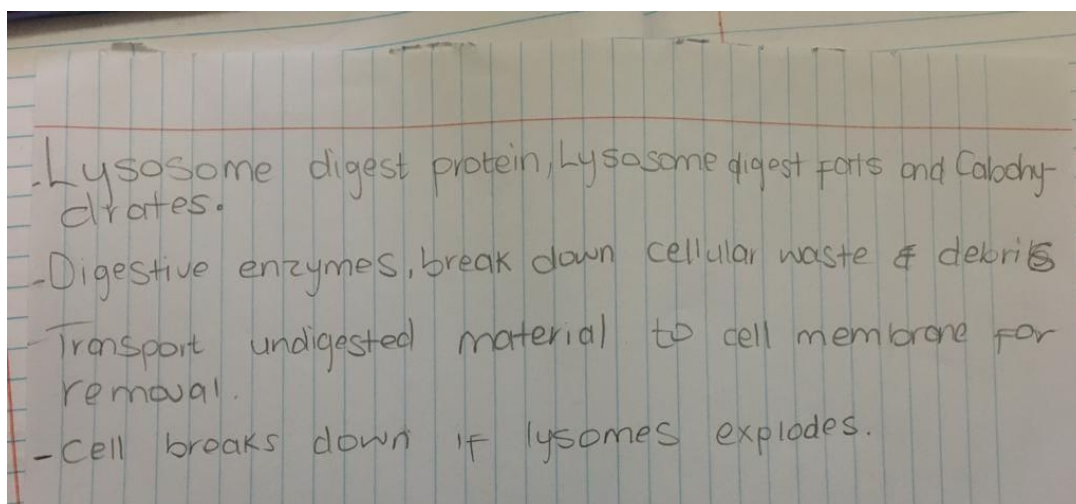 -Lysosome digest protein, Lysosome digest fats and Cabohy-
drates.
-Digestive enzymes, break down cellular waste & debris
-Transport undigested material to cell membrane for
removal.
-Cell breaks down if lysomes explodes.